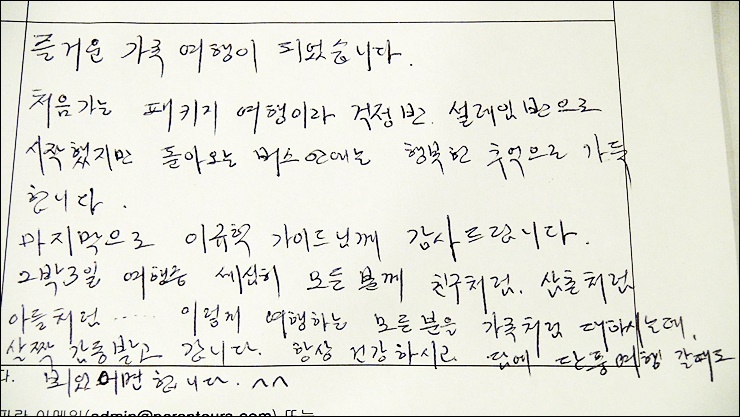 즐거운 가족 여행이 되었습니다.
처음가는 패키지 여행이라 걱정반. 설레임반으로
시작했지만 돌아오는 버스안에는 행복한 추억으로 가득
합니다.
마지막으로 이규학 가이드님께 감사드립니다.
2박3일 여행중 세심히 모든 분께 친구처럼. 삼촌처럼
아들처럼...... 이렇게 여행하는 모든분을 가족처럼 대하시는데,
살짝 감동받고 갑니다. 항상 건강하시고 담에 단풍여행 갈때도
다. 뵈었으면 합니다. ^^
(admin@parantours.com) 또는